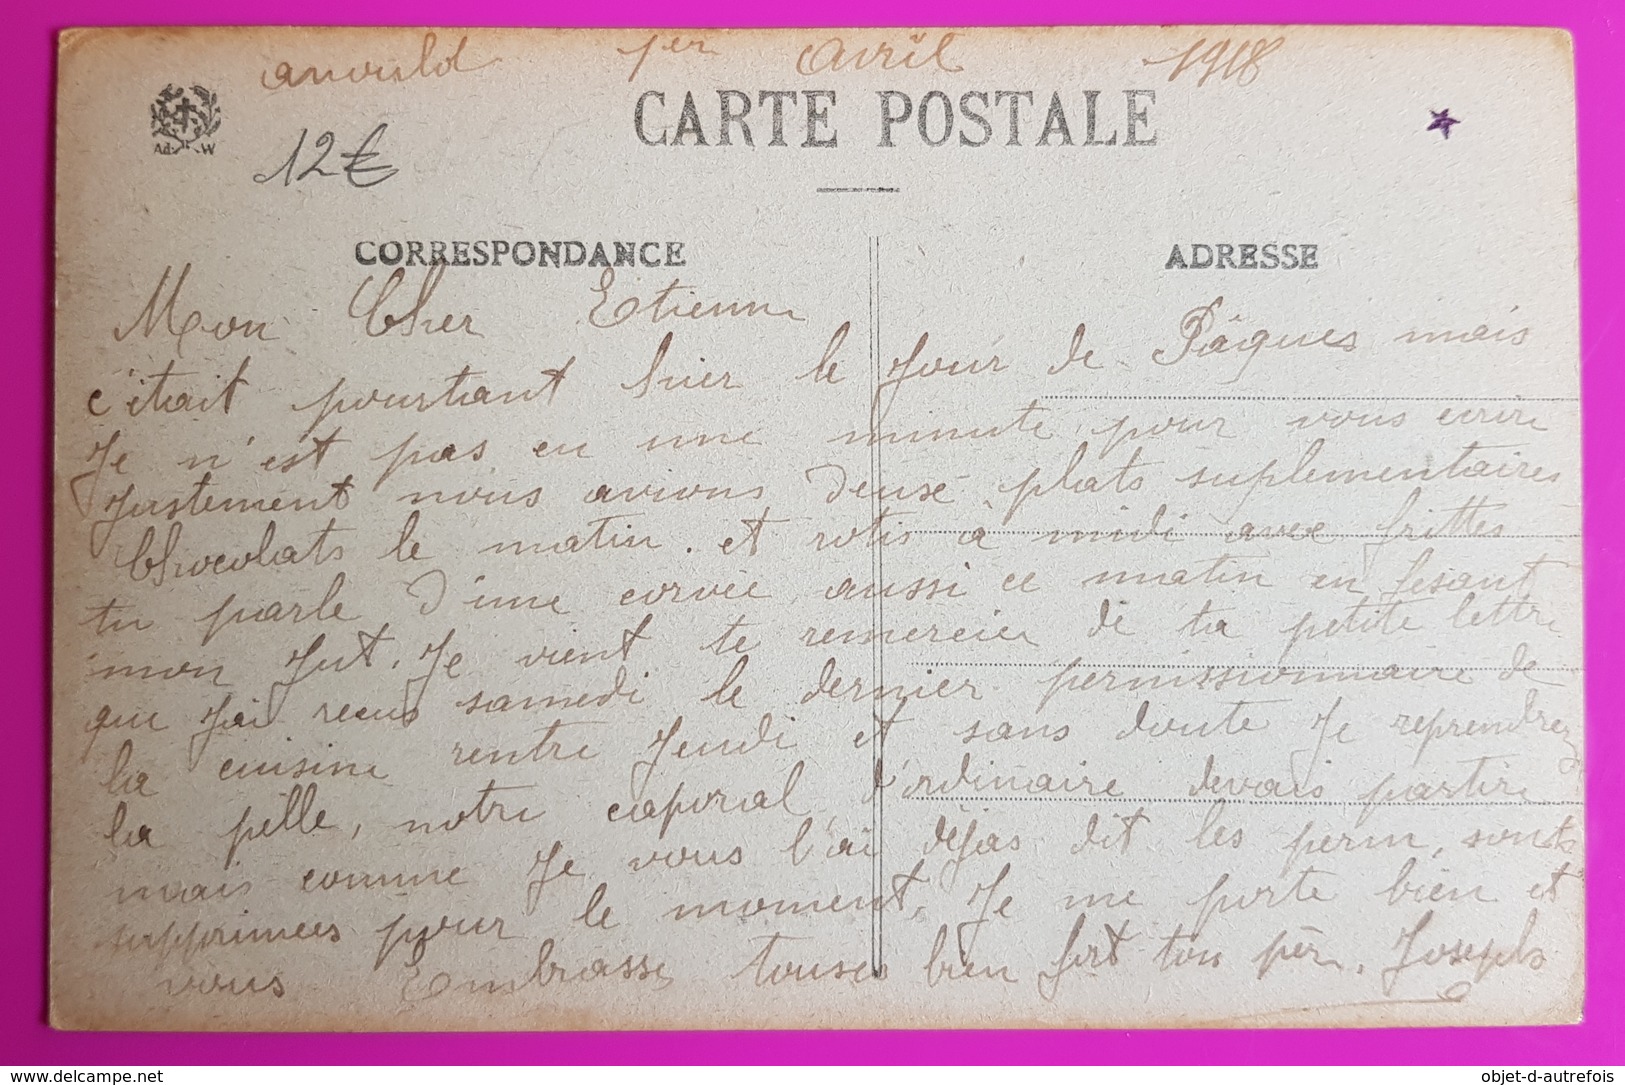 anould 1er Avril 1918
Ad. W
12€
CARTE POSTALE
CORRESPONDANCE
ADRESSE
Mon Cher Etienne
c'était pourtant hier le Jour de Pâques mais
Je n'est pas eu une minute pour vous ecrire
Justement nous avions deuse plats suplementaires
Chocolats le matin. et rotis à midi avec frittes
tu parle d'une corvée aussi ce matin en fesant
mon Jut. Je vient te remercier de ta petite lettre
que J'ai recus samedi le dernier permissionnaire de
la cuisine rentre Jeudi et sans doute Je reprendrez
la pelle, notre caporal d'ordinaire devais partire
mais comme Je vous l'ai dejas dit les perm, sonts
supprimees pour le moment, Je me porte bien et
vous Embrasse touses bien fort ton pèr. Joseph
www.delcampe.net
objet-d-autrefois